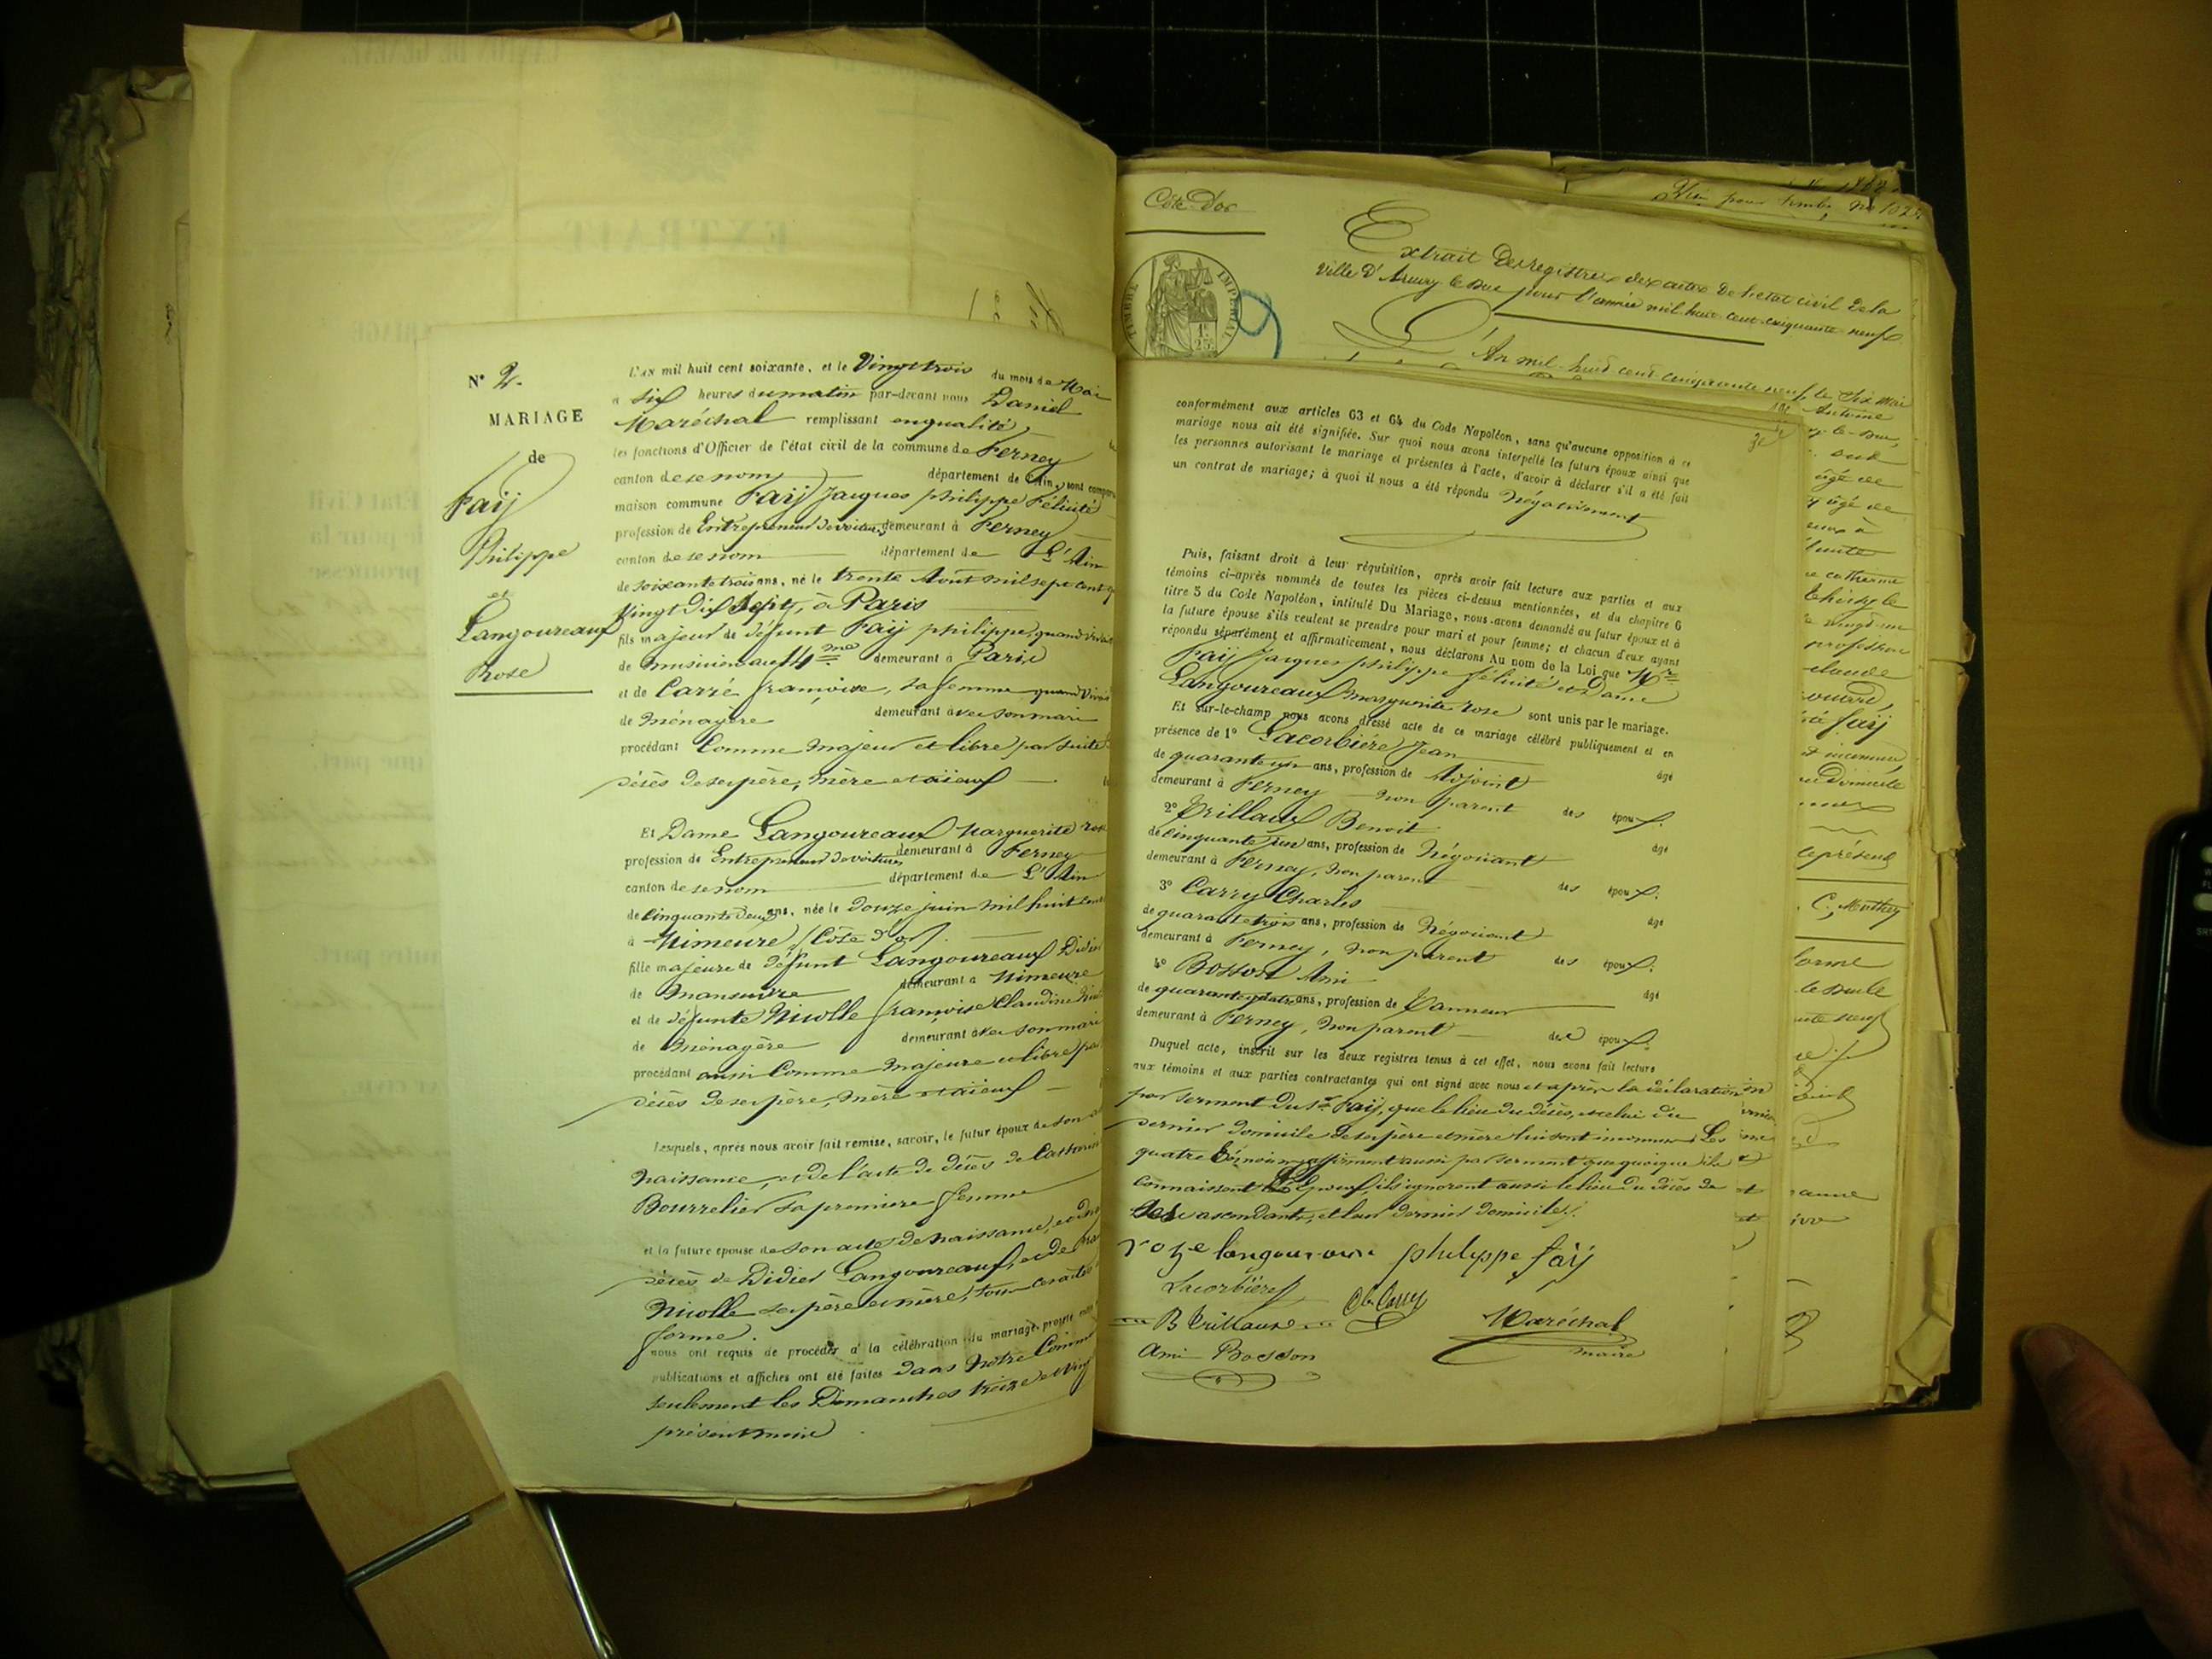 N° 2.
MARIAGE
de
Faÿ
Philippe
et
Langoureaux
Rose
L'AN mil huit cent soixante, et le Vingt trois du mois de Mai
à six heures du matin par-devant nous Daniel
Maréchal remplissant en qualité
les fonctions d'Officier de l'état civil de la commune de Ferney
canton de ce nom département de l'Ain, sont
maison commune Faÿ Jacques philippe Félicité
profession de Entrepreneur de voitures demeurant à Ferney
canton de ce nom département de L'Ain
de soixante trois ans, né le trente Août mil sept cent
Vingt dix sept, à Paris
fils majeur de défunt Faÿ philippe, quand vivait
de musicien au 14me demeurant à Paris
et de Carré françoise, sa femme quand
de Ménagère demeurant avec son mari
procédant Comme Majeur et libre par suite
décès de ses père, mère et aïeux
Et Dame Langoureaux Marguerite
profession de Entrepreneur de voitures demeurant à Ferney
canton de ce nom département de L'Ain
de Cinquante deux ans, née le Douze juin mil huit
à Mimeure (Côte d'or).
fille majeure de défunt Langoureaux
de manœuvre demeurant à Mimeure
et de défunte Nicolle françoise Claudine
de Ménagère demeurant avec son mari
procédant aussi Comme Majeure et libre
décès de ses père, mère et aïeux
Lesquels, après nous avoir fait remise, savoir, le futur époux de son
naissance, et de l'acte de décès de
Bourrelier sa première femme
et la future épouse de son acte de naissance,
décès de Didier Langoureaux, et de
Nicolle ses père et mère,
forme.
nous ont requis de procéder à la célébration du mariage projeté
publications et affiches ont été faites dans Notre
seulement les Dimanches treize et
présent mois
Côte d'or
TIMBRE IMPÉRIAL
Extrait des registres des actes de l'état civil de la
ville d'Arnay le Duc pour l'année mil huit cent cinquante neuf
L'An mil huit cent cinquante neuf, le six Mai
conformément aux articles 63 et 64 du Code Napoléon, sans qu'aucune opposition à ce
mariage nous ait été signifiée. Sur quoi nous avons interpellé les futurs époux ainsi que
les personnes autorisant le mariage et présentes à l'acte, d'avoir à déclarer s'il a été fait
un contrat de mariage; à quoi il nous a été répondu Négativement
Puis, faisant droit à leur réquisition, après avoir fait lecture aux parties et aux
témoins ci-après nommés de toutes les pièces ci-dessus mentionnées, et du chapitre 6
titre 5 du Code Napoléon, intitulé Du Mariage, nous avons demandé au futur époux et à
la future épouse s'ils veulent se prendre pour mari et pour femme; et chacun d'eux ayant
répondu séparément et affirmativement, nous déclarons Au nom de la Loi que Mr
Faÿ Jacques philippe félicité et Dame
Langoureaux marguerite rose sont unis par le mariage.
Et sur-le-champ nous avons dressé acte de ce mariage célébré publiquement et en
présence de 1° Lacorbière Jean âgé
de quarante un ans, profession de Adjoint
demeurant à Ferney non parent des époux.
2° Trillaux Benoit âgé
de Cinquante un ans, profession de Négociant
demeurant à Ferney, Non parent des époux.
3° Carry Charles âgé
de quarante trois ans, profession de Négociant
demeurant à Ferney, Non parent des époux.
4° Bosson Ami âgé
de quarante quatre ans, profession de Tanneur
demeurant à Ferney, Non parent des époux.
Duquel acte, inscrit sur les deux registres tenus à cet effet, nous avons fait lecture
aux témoins et aux parties contractantes qui ont signé avec nous et après la déclaration
par serment du Sr Faÿ, que le lieu du décès, et celui du
dernier domicile de ses père et mère lui sont inconnus. Les
quatre témoins affirment aussi par serment que quoique ils
connaissent l'Epoux, ils ignorent aussi le lieu du décès de
ses ascendants, et leur dernier domicile.
roze langouroux philippe faÿ
Lacorbière Ch. Carry
B Trillaux Maréchal
maire
Ami Bosson